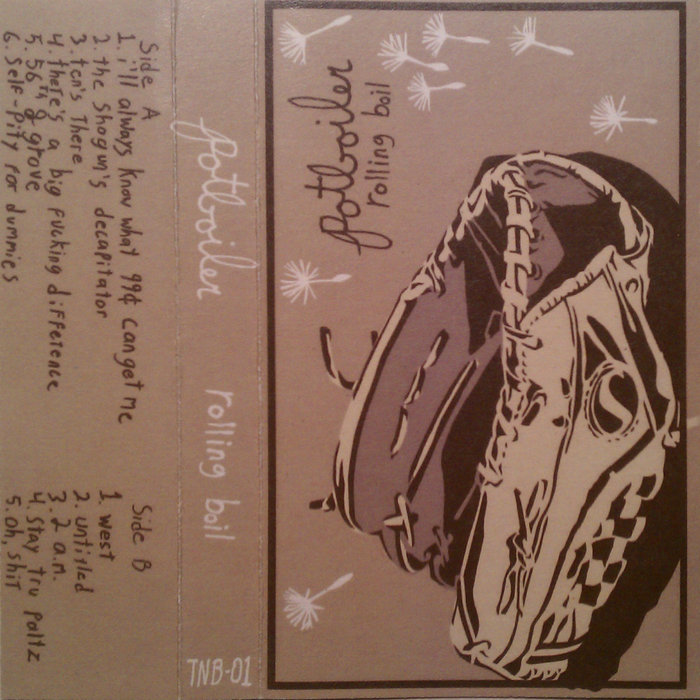 Side A
1. i'll always know what 99¢ can get me
2. the Shogun's decapitator
3. ten's There
4. there's a big fucking difference
5. 56th & grove
6. Self-Pity for dummies
Side B
1. west
2. untitled
3. 2 a.m.
4. Stay tru paltz
5. oh, shit
potboiler rolling boil
TNB-01
potboiler
rolling boil
S